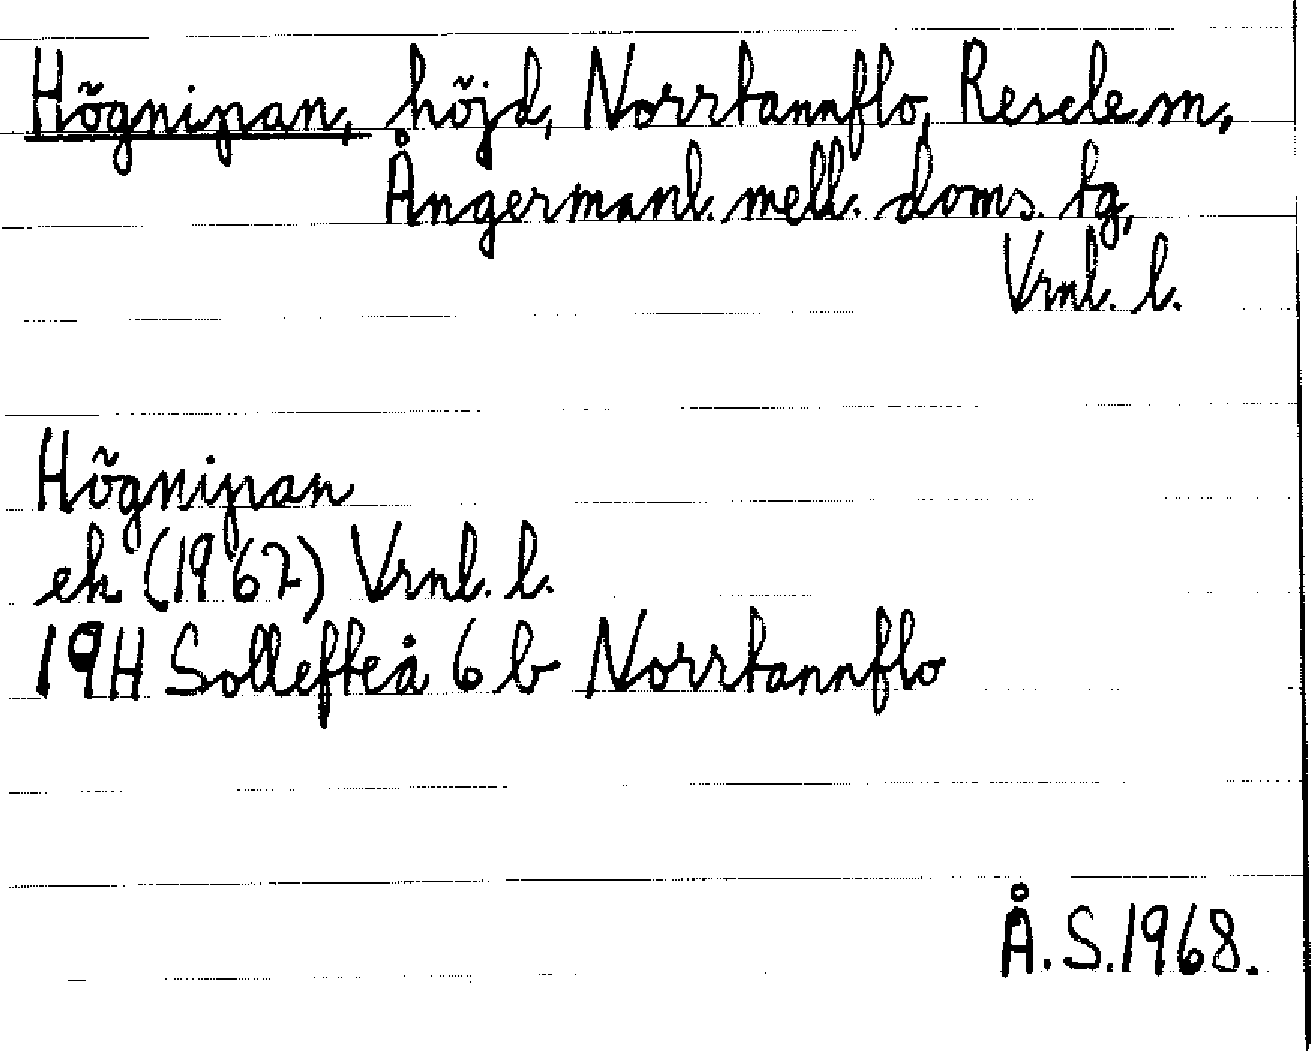 Högnipan, höjd, Norrtannflo, Resele sn,
Ångermanl. mell. doms. tg,
Vrnl. l.
Högnipan
ek (1967) Vrnl. l.
19H Sollefteå 6 b Norrtannflo
Å.S.1968.